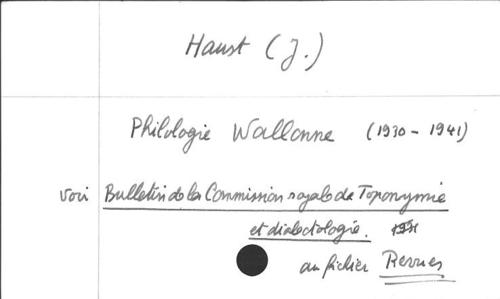 Haust (J.)
Philologie Wallonne (1930 - 1941)
voir Bulletin de la Commission royale de Toponymie
et dialectologie.
au fichier Revues